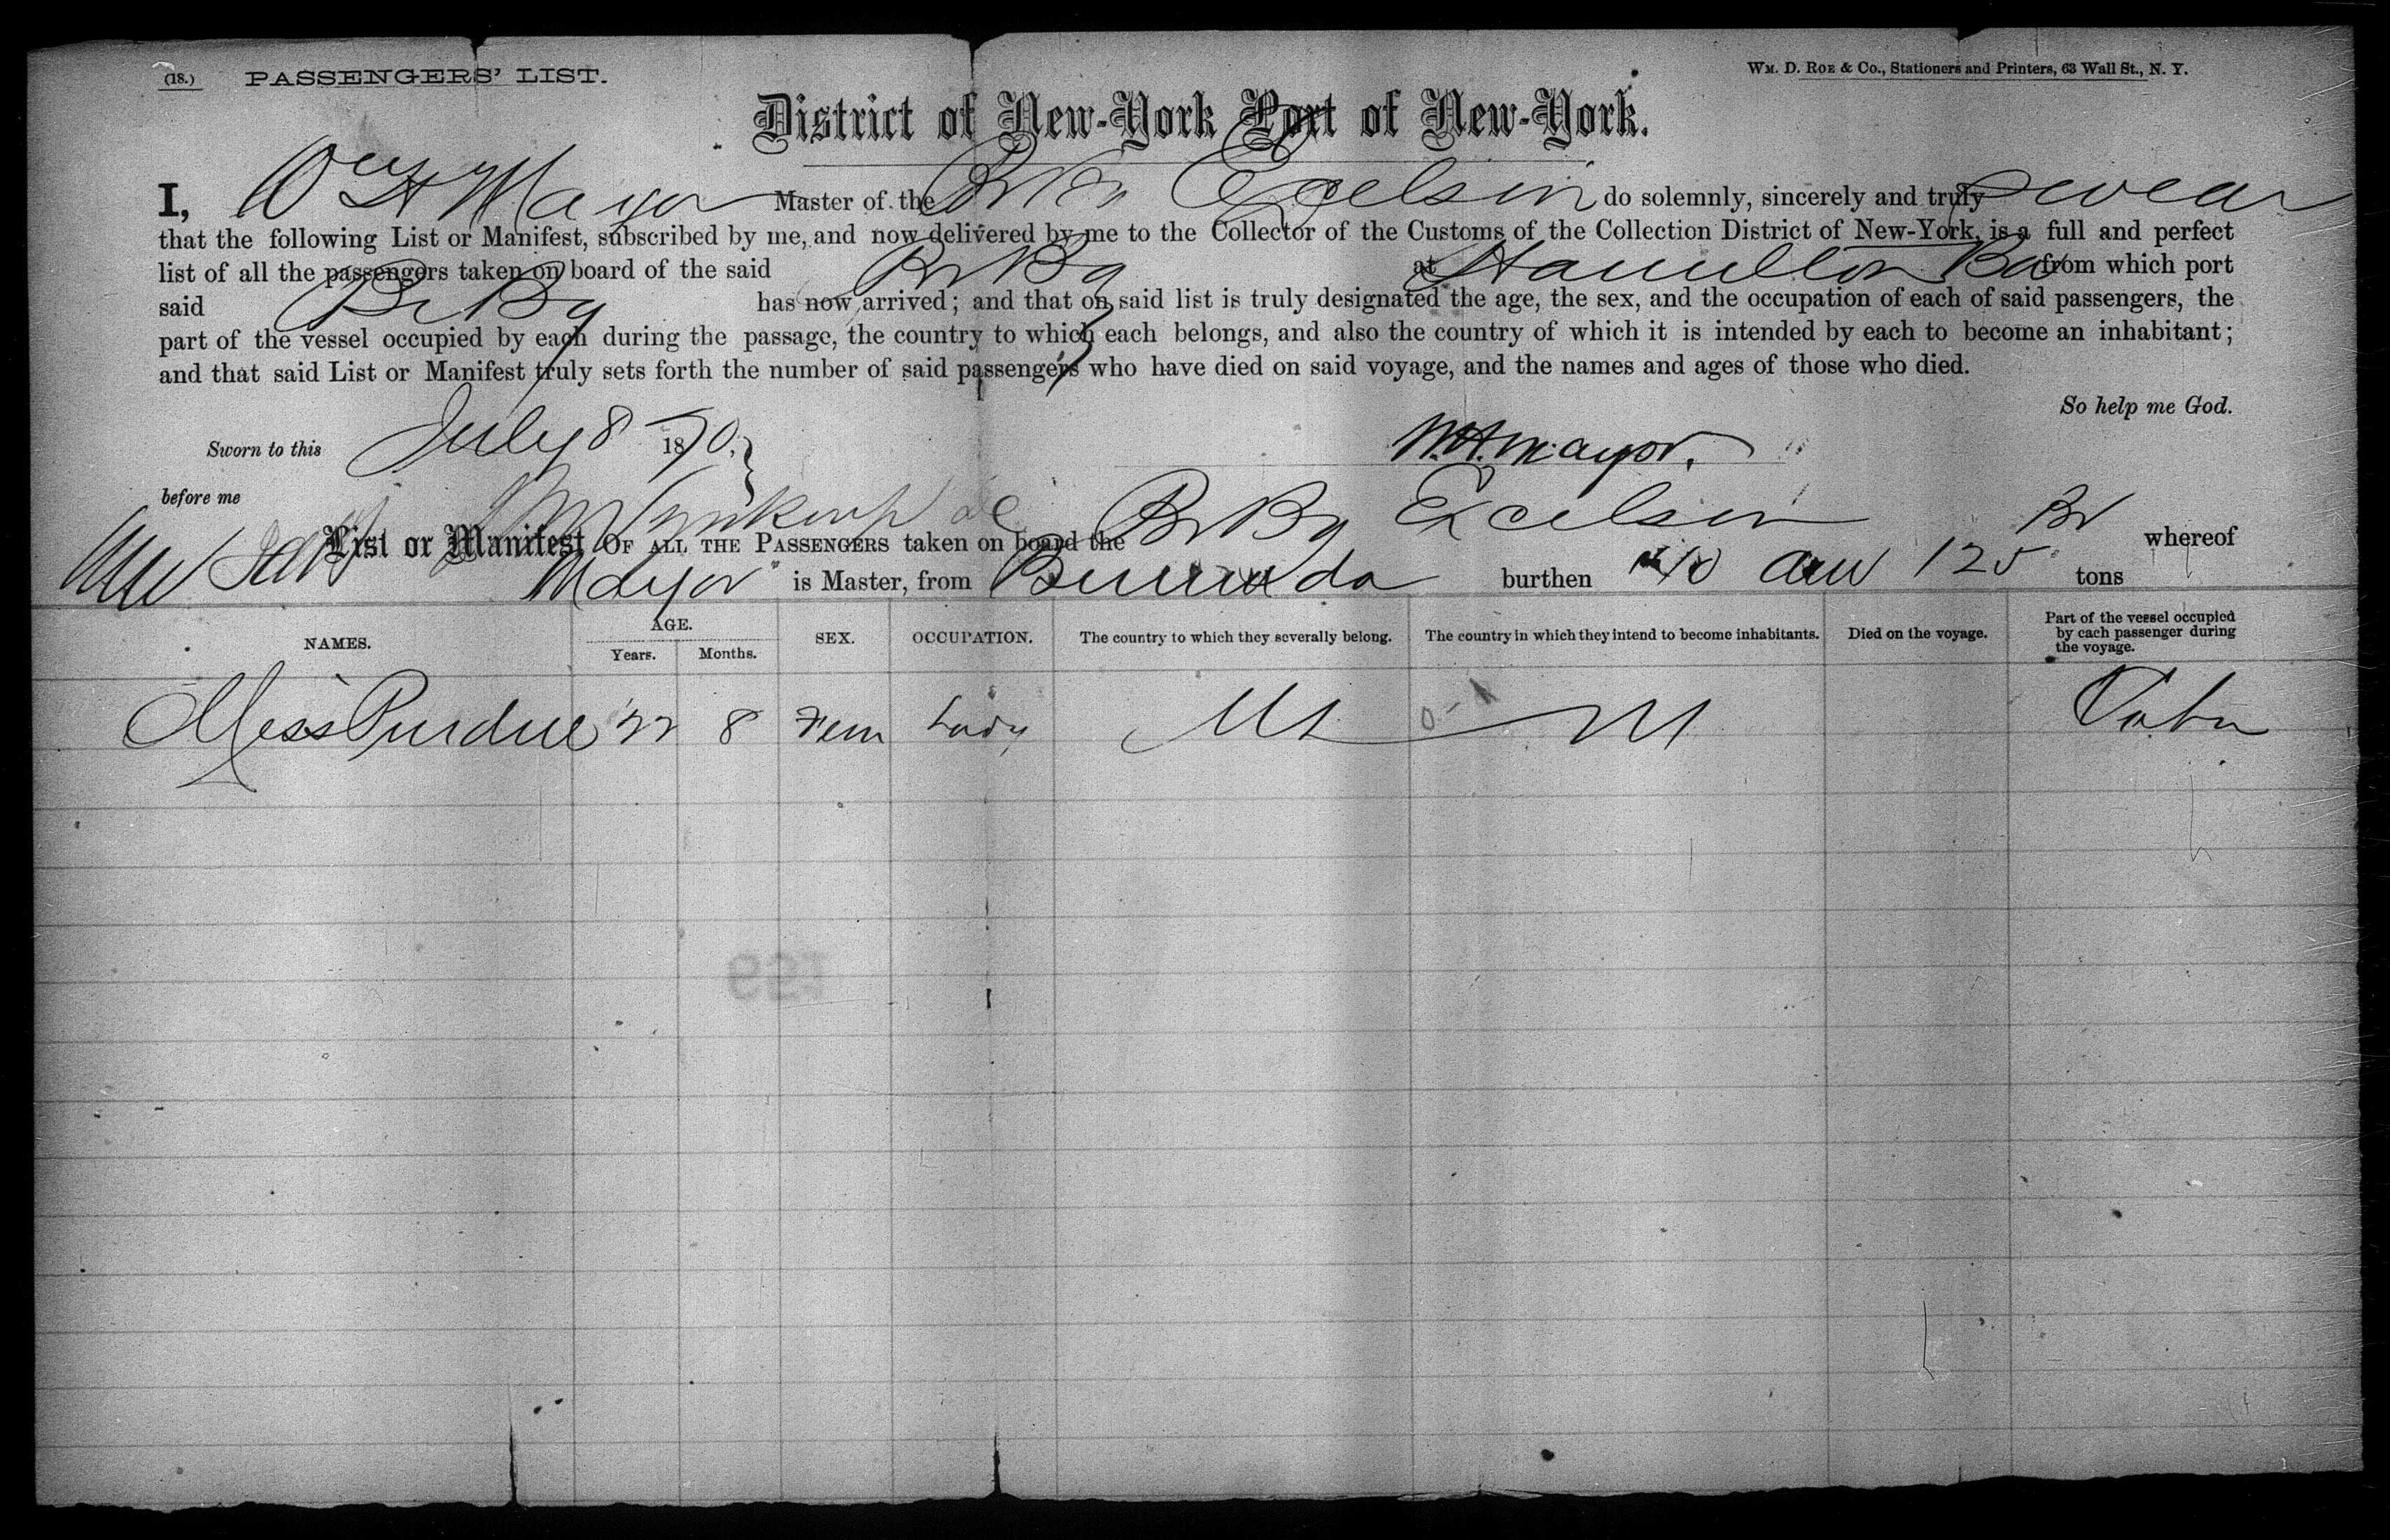 (18.) PASSENGERS' LIST.
WM. D. ROE & Co., Stationers and Printers, 63 Wall St., N. Y.
District of New-York Port of New-York.
I, Wm H Mayor Master of the Br Bg Excelsior do solemnly, sincerely and truly swear
that the following List or Manifest, subscribed by me, and now delivered by me to the Collector of the Customs of the Collection District of New-York, is a full and perfect
list of all the passengers taken on board of the said Br Bg at Hamilton Ba from which port
said Br Bg has now arrived; and that on said list is truly designated the age, the sex, and the occupation of each of said passengers, the
part of the vessel occupied by each during the passage, the country to which each belongs, and also the country of which it is intended by each to become an inhabitant;
and that said List or Manifest truly sets forth the number of said passengers who have died on said voyage, and the names and ages of those who died.
So help me God.
Sworn to this July 8 1870.
W.H. Mayor.
before me
List or Manifest OF ALL THE PASSENGERS taken on board the Br Bg Excelsior Br whereof
Mayor is Master, from Bermuda burthen 125 tons
NAMES. AGE. Years. Months. SEX. OCCUPATION. The country to which they severally belong. The country in which they intend to become inhabitants. Died on the voyage. Part of the vessel occupied by each passenger during the voyage.
Miss Purdue 22 8 Fem Lady US US Cabin